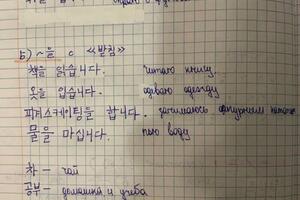 б) ~을 с «받침»
책을 읽습니다. читаю книгу
옷을 입습니다. одеваю одежду
피겨스케이팅을 합니다. занимаюсь фигурным
물을 마십니다. пью воду
차 — чай
공부 — домашка и учёба